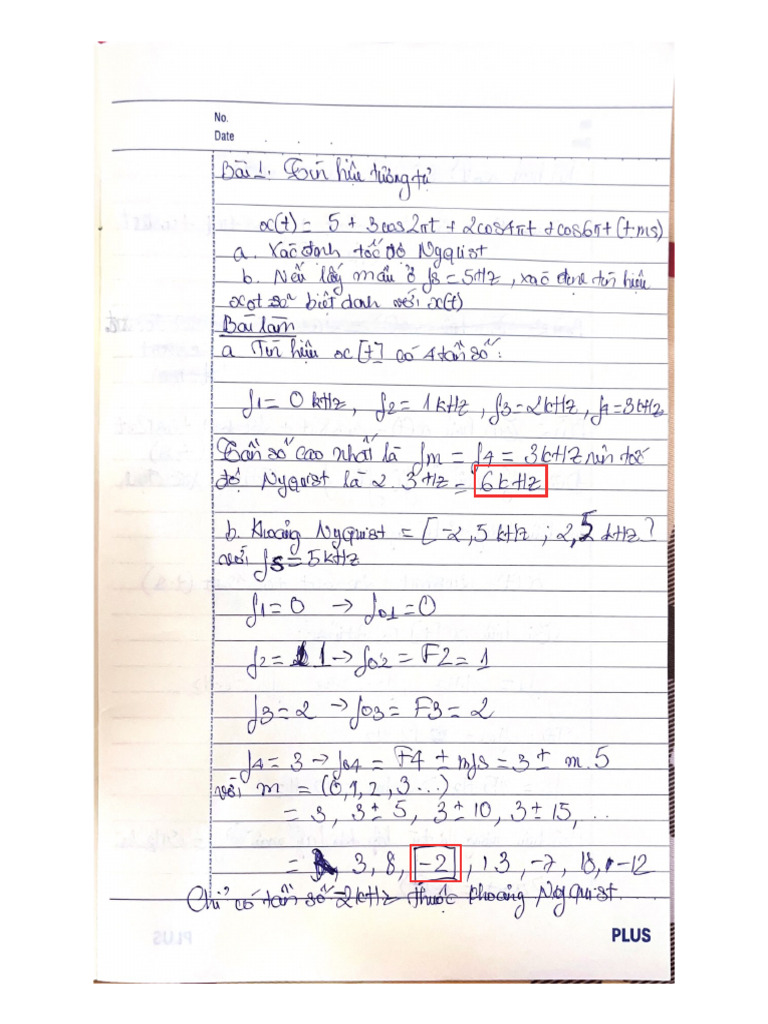 No.
Date
Bài 1. Tín hiệu tương tự
x(t) = 5 + 3cos2πt + 2cos4πt + cos6πt (t:ms)
a. Xác định tốc độ Nyquist
b. Nếu lấy mẫu ở fs = 5Hz, xác định tín hiệu
biệt danh với x(t)
Bài làm
a Tín hiệu x[t] có 4 tần số:
f1 = 0 kHz, f2 = 1kHz, f3 = 2kHz, f4 = 3kHz
Tần số cao nhất là fM = f4 = 3kHz nên tốc
độ Nyquist là 2. 3Hz = 6kHz
b. Khoảng Nyquist = [-2,5 kHz ; 2,5 kHz]
với fs = 5kHz
f1 = 0 → f01 = 0
f2 = 1 → f02 = F2 = 1
f3 = 2 → f03 = F3 = 2
f4 = 3 → f04 = F4 ± mfs = 3 ± m.5
với m = (0,1,2,3...)
= 3, 3 ± 5, 3 ± 10, 3 ± 15, ..
= 3, 8, -2, 13, -7, 18, -12
Chỉ có tần số -2kHz thuộc khoảng Nyquist.
PLUS
PLUS